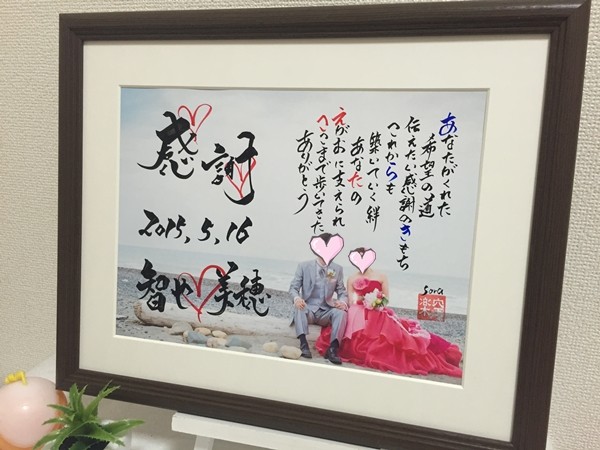 感謝
2015.5.16
智也 美穂
あなたがくれた
希望の道
伝えたい感謝のきもち
これからも
築いていく絆
あなたの
えがおに支えられ
ここまで歩いてきた
ありがとう
sora